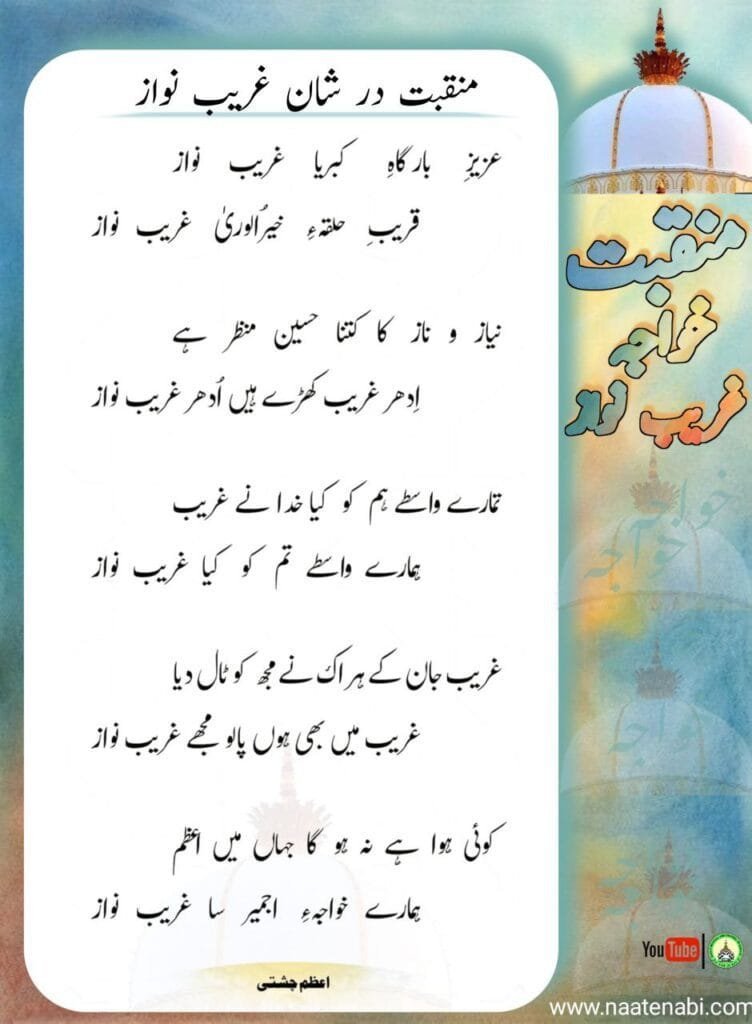 منقبت در شان غریب نواز
عزیزِ بارگاہِ کبریا غریب نواز
قریبِ حلقہءِ خیرُالوریٰ غریب نواز
نیاز و ناز کا کتنا حسین منظر ہے
اِدھر غریب کھڑے ہیں اُدھر غریب نواز
تمارے واسطے ہم کو کیا خدا نے غریب
ہمارے واسطے تم کو کیا غریب نواز
غریب جان کے ہر اک نے مجھ کو ٹال دیا
غریب میں بھی ہوں پالو مجھے غریب نواز
کوئی ہوا ہے نہ ہو گا جہاں میں اعظم
ہمارے خواجہءِ اجمیر سا غریب نواز
اعظم چشتی
منقبت
خواجہ
غریب نواز
خواجہ
خواجہ
خواجہ
YouTube
www.naatenabi.com